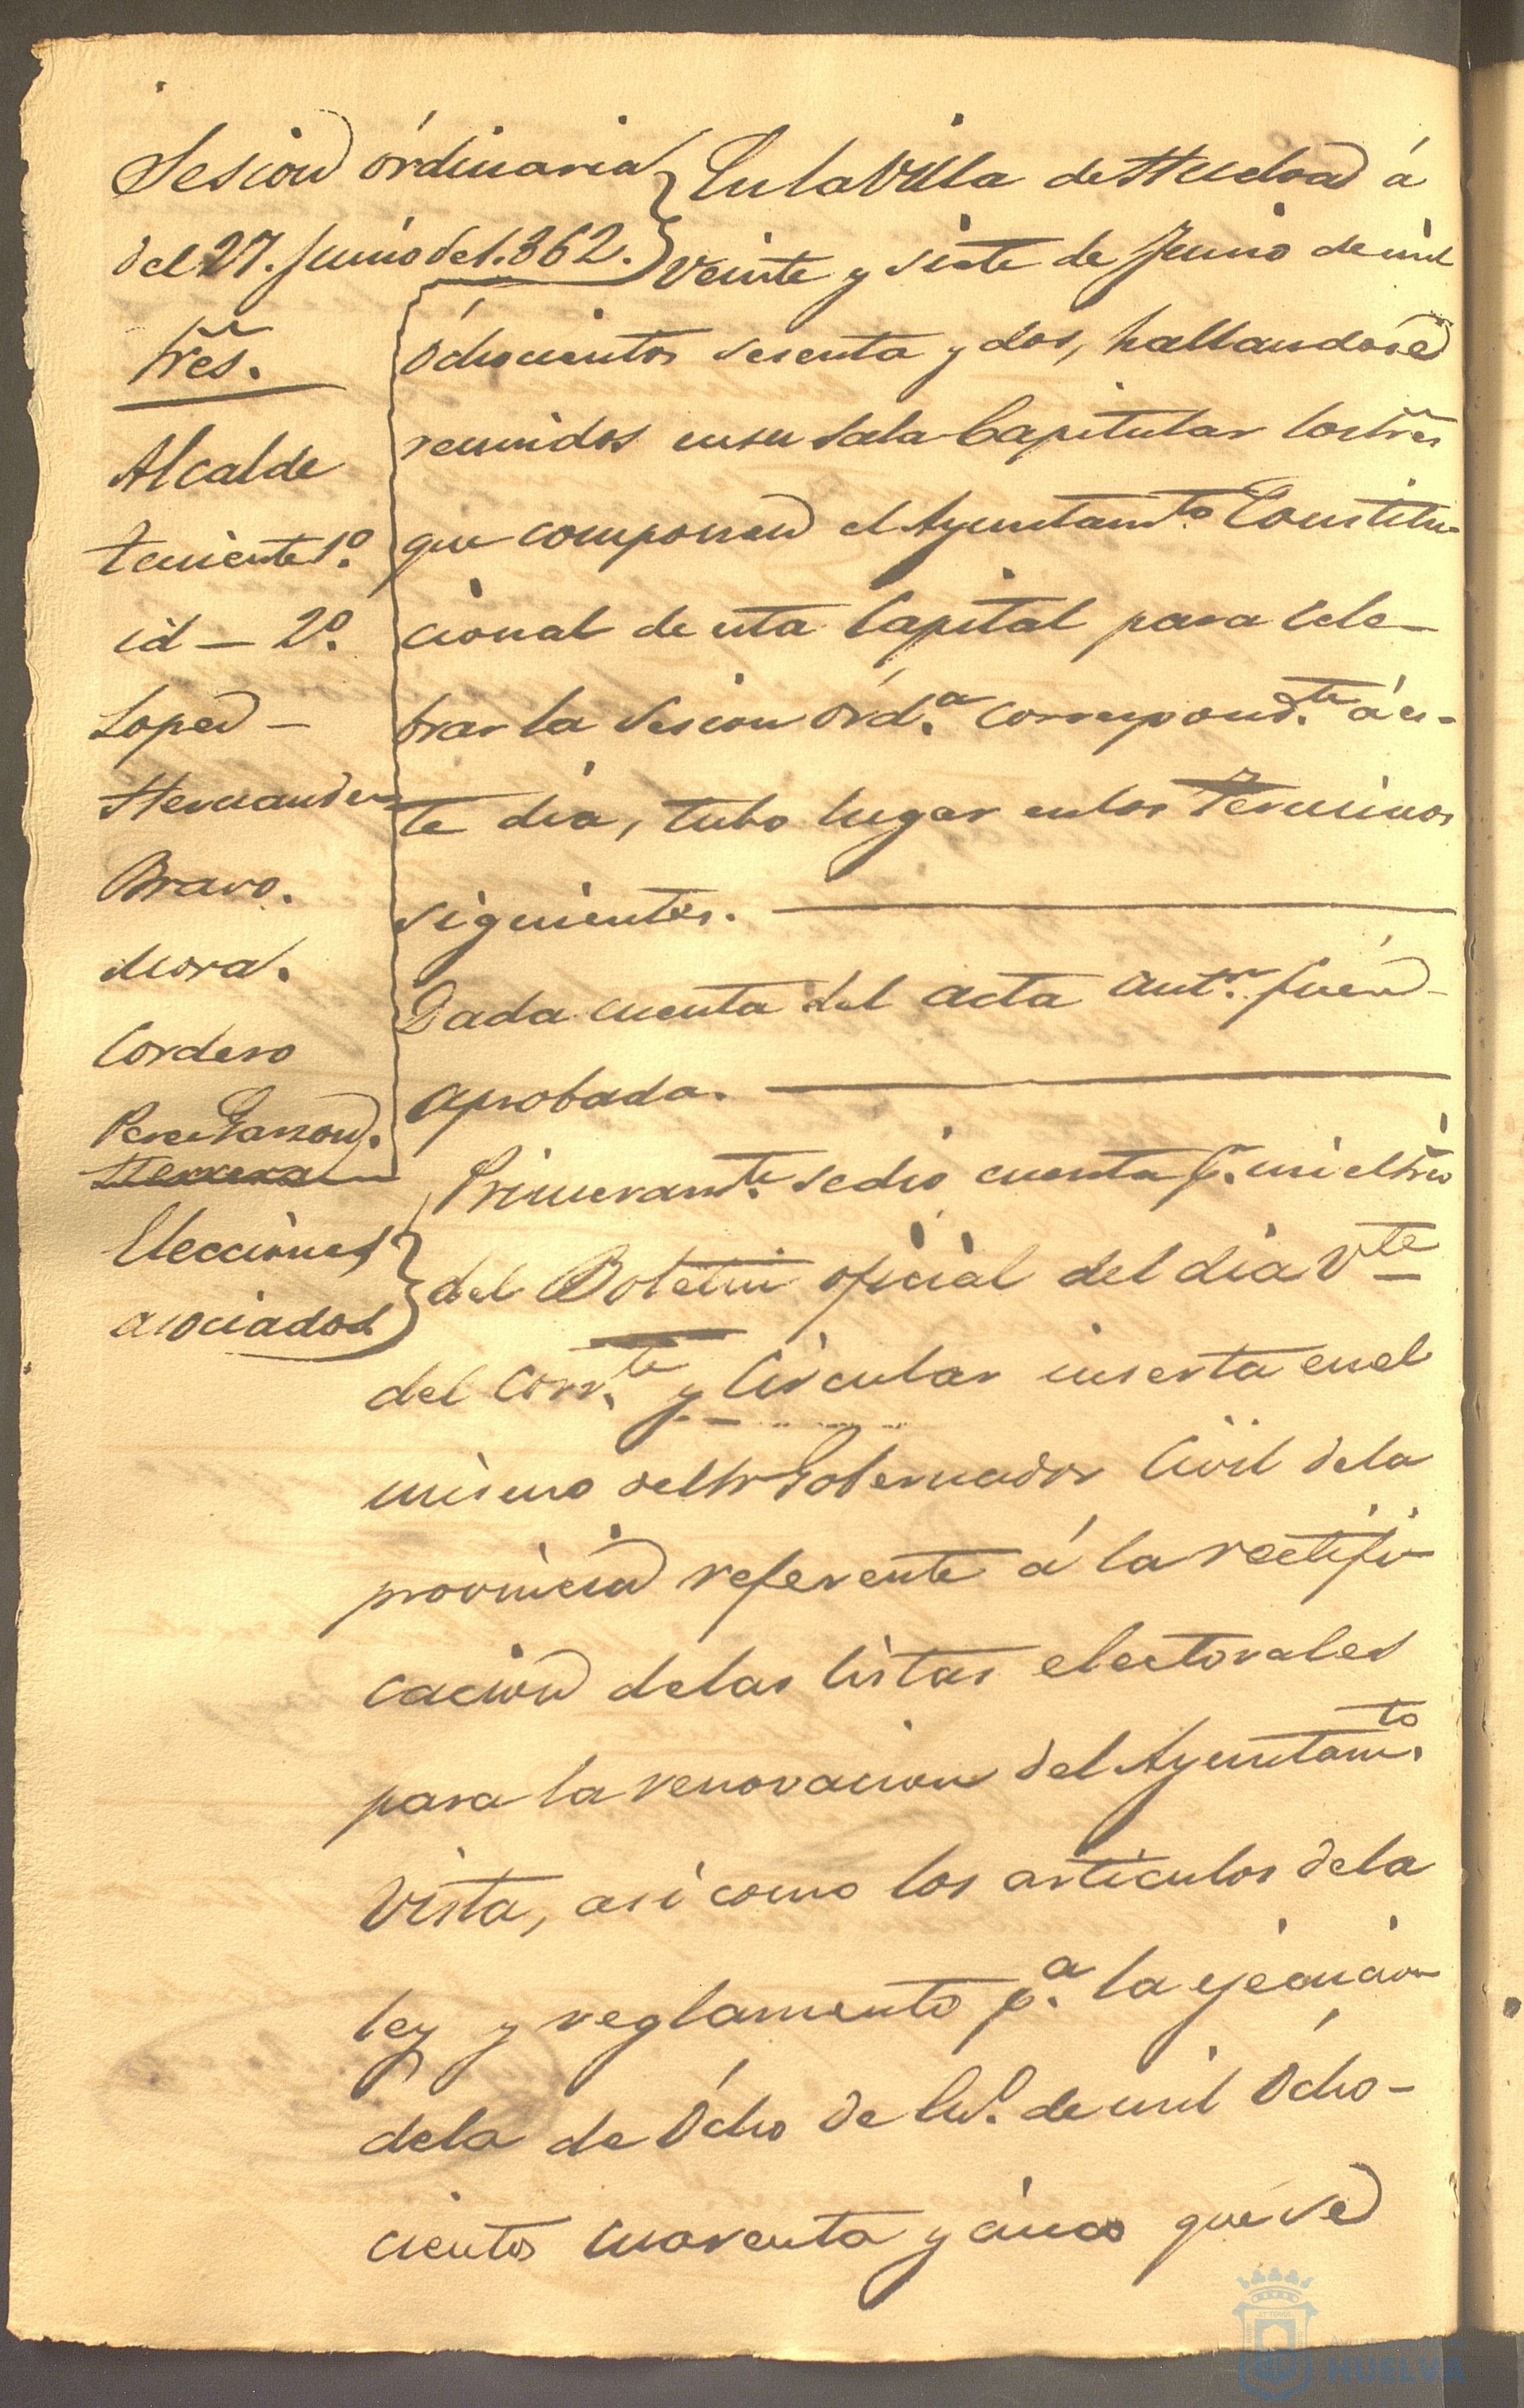 Sesion órdinaria
del 27. Junio de 1.862.
Sres.
Alcalde
teniente 1º.
id – 2º.
Loped –
Hernandez
Bravo.
Mora.
Cordero
Perez Garzon.
Herrera
Elecciones
asociados
En la Villa de Huelva á
veinte y siete de Junio de mil
óchocientos sesenta y dos, hallandose
reunidos en su Sala Capitular los Sres
que componen el Ayuntamto. Constitu-
cional de esta Capital para cele-
brar la Sesion órd.ª correspond.te á es-
te dia, tubo lugar en los terminos
siguientes.
Dada cuenta del acta antr. fué
aprobada.
Primeramte. se dio cuenta p.r mi el Srio
del Boletin oficial del dia Vte
del corr.te y Circular inserta en el
mismo del Sr Gobernador Civil de la
provincia referente á la rectifi-
cacion de las listas electorales
para la renovacion del Ayuntamto.
Vista, asi como los articulos de la
ley y reglamento p.a la ejecucion
de la de ócho de En.º de mil ócho-
cientos cuarenta y cinco que se
HUELVA